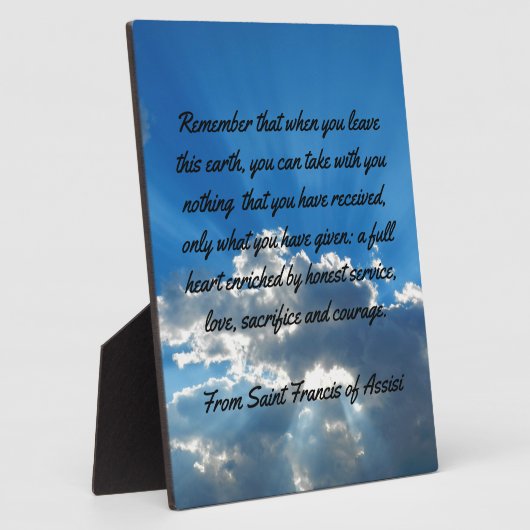 Remember that when you leave
this earth, you can take with you
nothing that you have received,
only what you have given: a full
heart enriched by honest service,
love, sacrifice and courage.
From Saint Francis of Assisi